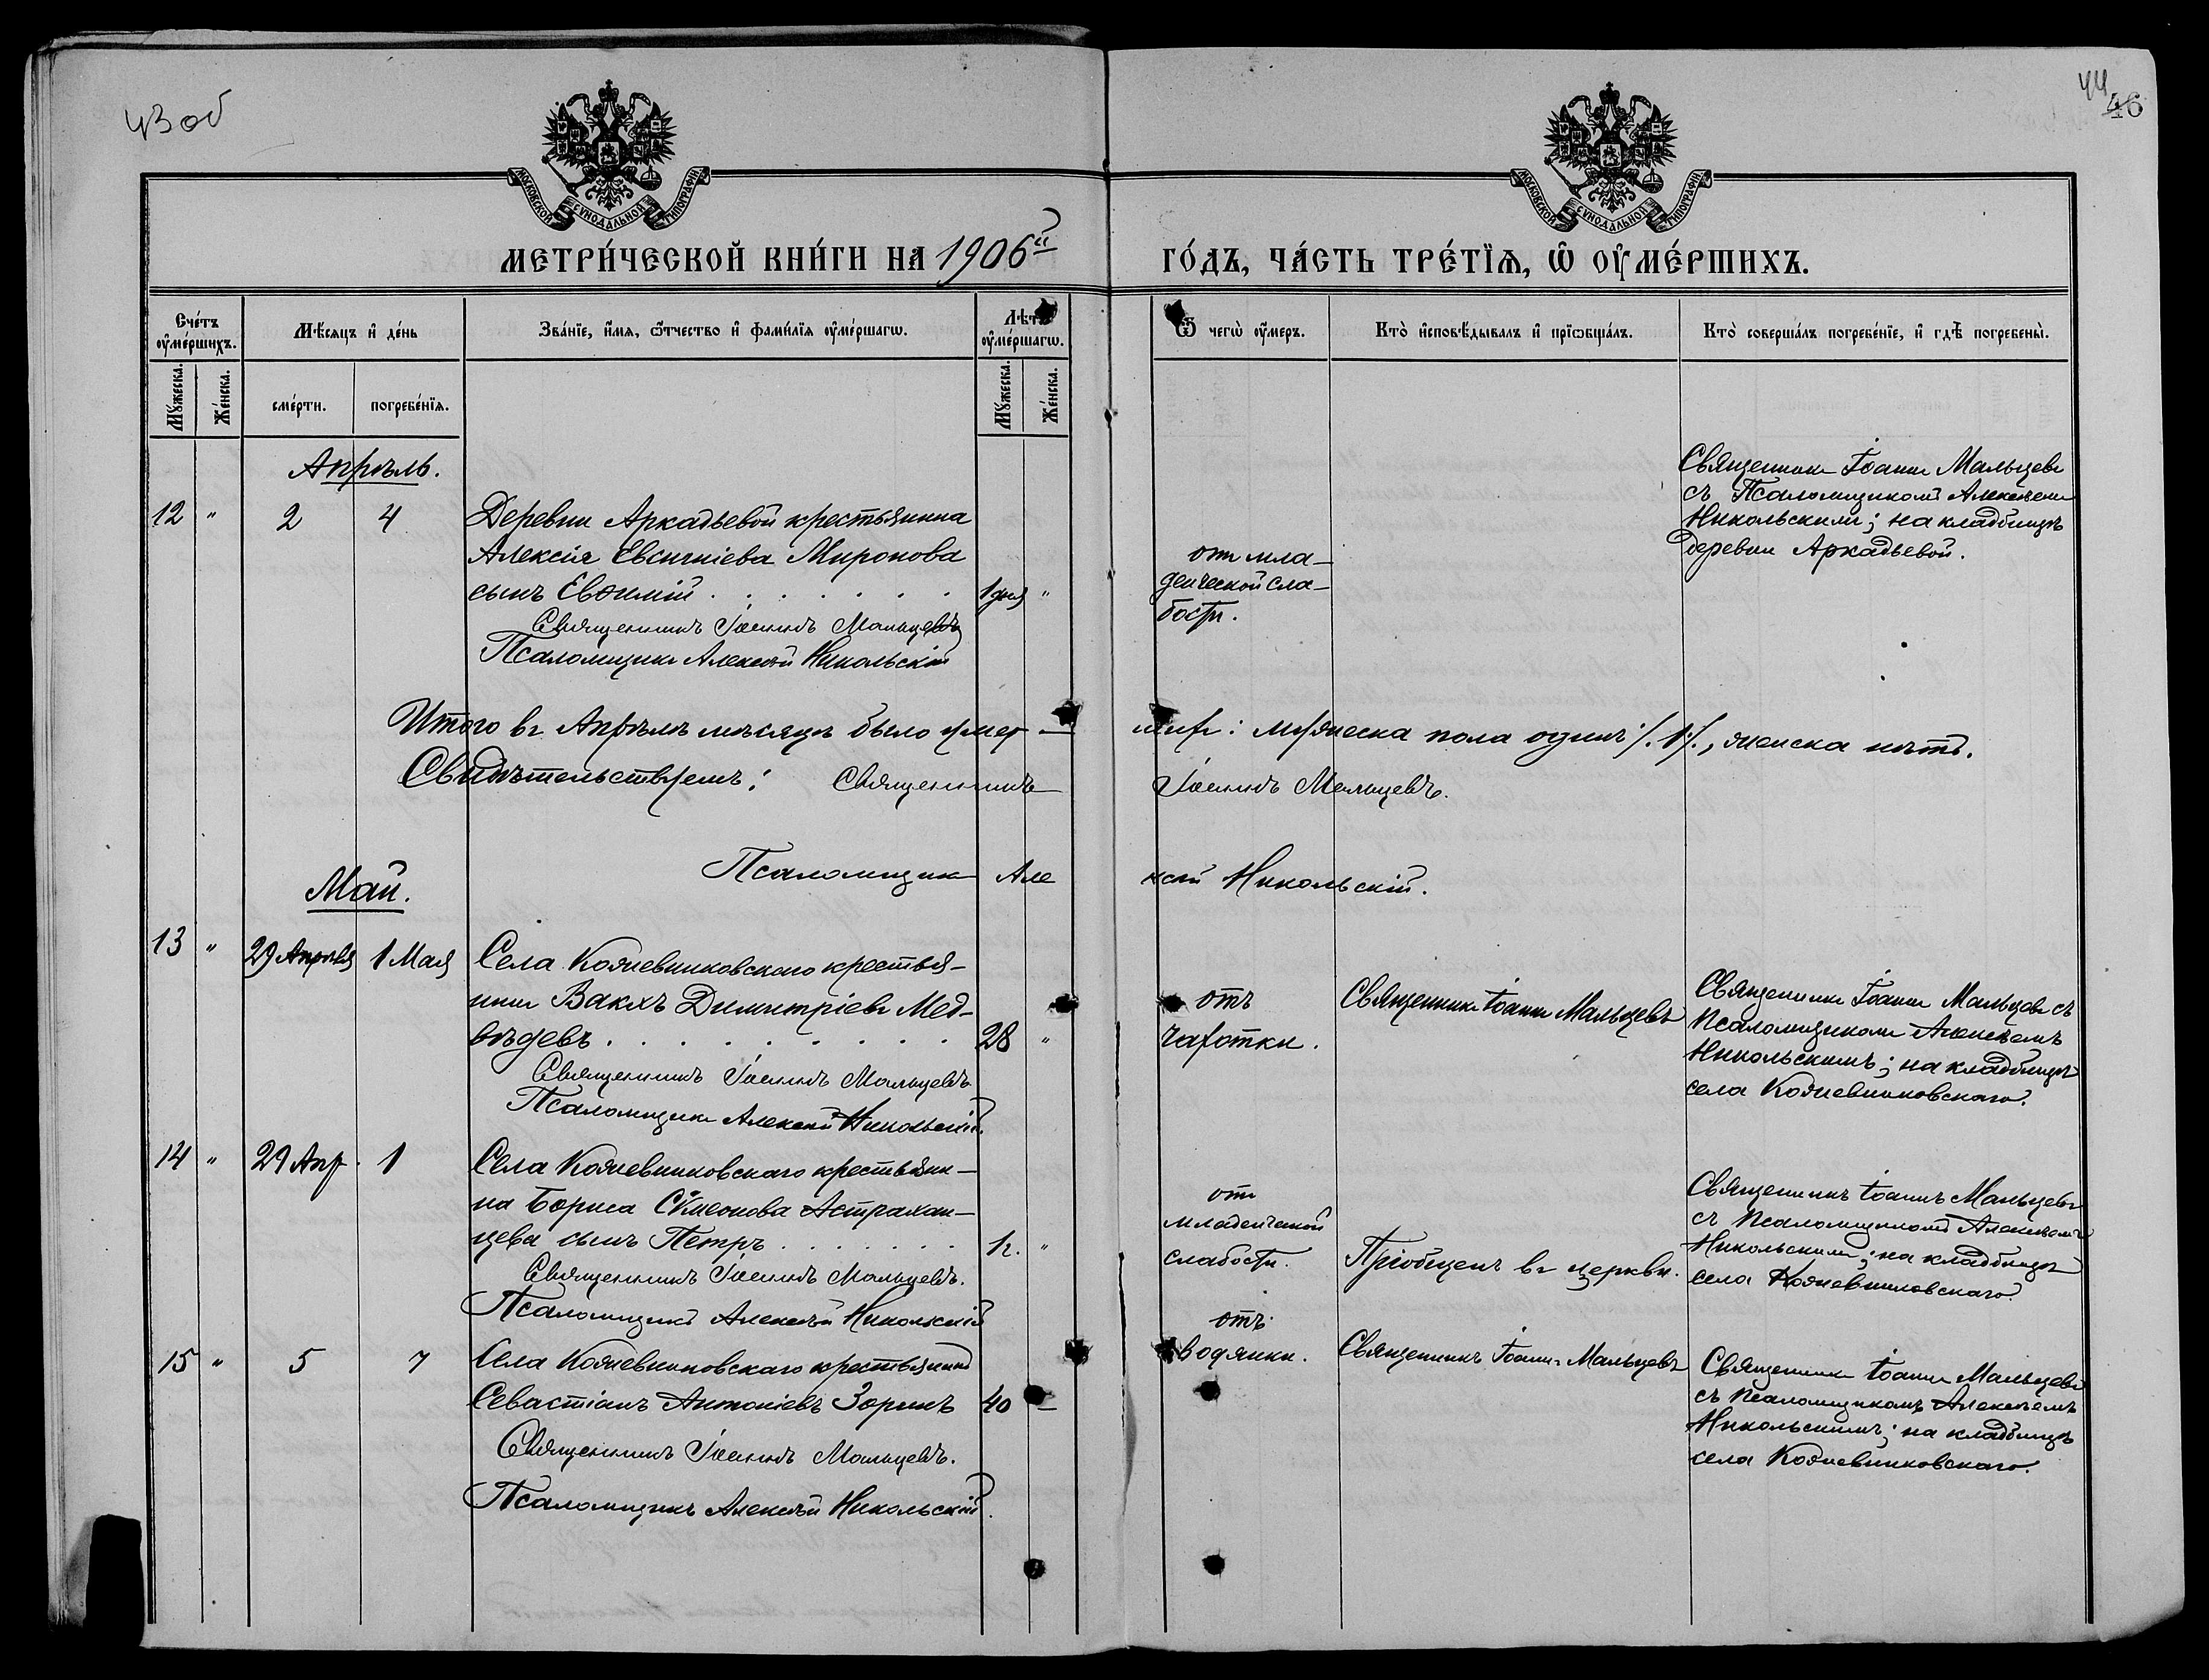 43 об
44
46
МОСКОВСКОЙ СѴНОДАЛЬНОЙ ТИПОГРАФІИ
МОСКОВСКОЙ СѴНОДАЛЬНОЙ ТИПОГРАФІИ
МЕТРИ́ЧЕСКОЙ КНИ́ГИ НА 1906й ГО́ДЪ, ЧА́СТЬ ТРЕ́ТЇѦ, Ѡ ОУМЕ́РШИХЪ.
Сче́тъ оуме́ршихъ.
Мѣ́сяцъ и де́нь
Зва́нїе, и́мя, ѻ́тчество и фами́лїя оуме́ршагѡ.
Лѣт
оуме́ршагѡ.
Ѿ чегѡ̀ оу́меръ.
Кто̀ исповѣ́дывалъ и прїѡбща́лъ.
Кто̀ соверша́лъ погребе́нїе, и гдѣ̀ погребены̀.
Му́жеска.
Же́нска.
сме́рти.
погребе́нїя.
Му́жеска.
Же́нска.
Апрѣль.
12 " 2 4
Деревни Аркадьевой крестьянина
Алексія Евсигніева Миронова
сынъ Евѳимій . . . . . . 1 дня "
Священникъ Іоаннъ Мальцевъ
Псаломщикъ Алексѣй Никольскій
от мла-
денческой сла-
бости.
Священникъ Іоаннъ Мальцевъ
съ Псаломщикомъ Алексѣемъ
Никольскимъ; на кладбищѣ
деревни Аркадьевой.
Итого въ Апрѣлѣ мѣсяцѣ было умер-шихъ: мужеска пола одинъ /.1./, женска нѣтъ.
Свидѣтельствуемъ: Священникъ Іоаннъ Мальцевъ.
Псаломщикъ Алексѣй Никольскій.
Май.
13 " 29 Апрѣля 1 Мая
Села Кожевниковскаго крестья-
нинъ Вакхъ Димитріевъ Мед-
вѣдевъ . . . . . . . . . 28 "
Священникъ Іоаннъ Мальцевъ
Псаломщикъ Алексѣй Никольскій.
отъ
чахотки.
Священникъ Іоаннъ Мальцевъ
Священникъ Іоаннъ Мальцевъ съ
Псаломщикомъ Алексѣемъ
Никольскимъ; на кладбищѣ
села Кожевниковскаго.
14 " 29 Апр. 1
Села Кожевниковскаго крестьяни-
на Бориса Сѵмеонова Астрахан-
цева сынъ Петръ . . . . . . . 1 г. "
Священникъ Іоаннъ Мальцевъ.
Псаломщикъ Алексѣй Никольскій
отъ
младенческой
слабости.
Пріобщенъ въ церкви.
Священникъ Іоаннъ Мальцевъ
съ Псаломщикомъ Алексѣемъ
Никольскимъ; на кладбищѣ
села Кожевниковскаго.
15 " 5 7
Села Кожевниковскаго крестьянинъ
Севастіанъ Антоніевъ Зоринъ 40 —
Священникъ Іоаннъ Мальцевъ.
Псаломщикъ Алексѣй Никольскій.
отъ
водянки.
Священникъ Іоаннъ Мальцевъ
Священникъ Іоаннъ Мальцевъ
съ Псаломщикомъ Алексѣемъ
Никольскимъ; на кладбищѣ
села Кожевниковскаго.